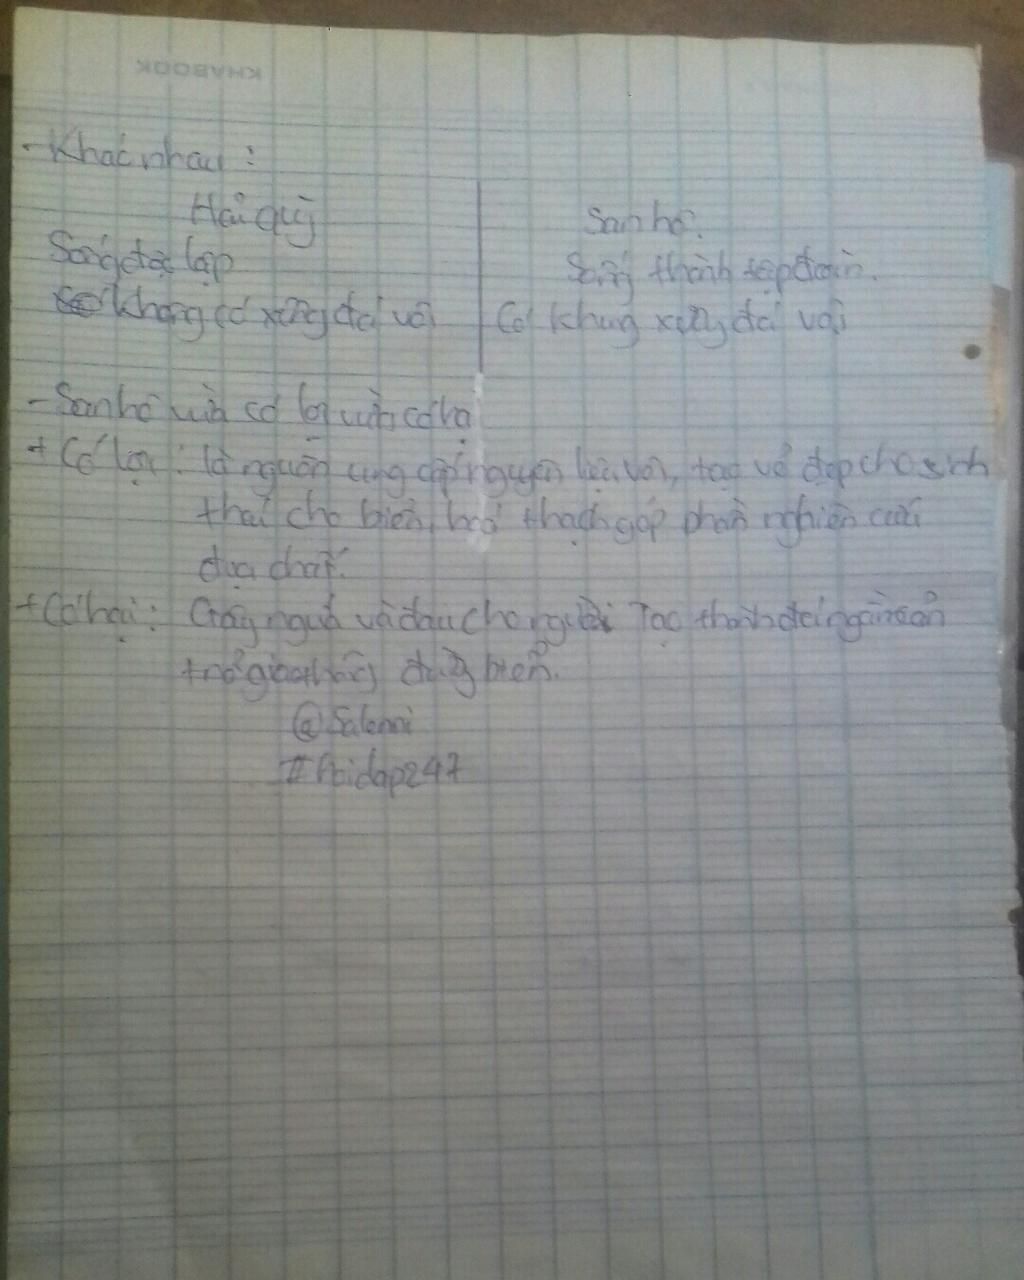 KHABOOK
- Khác nhau :
Hải quỳ
San hô.
Sống độc lập
Sống thành tập đoàn.
không có xương đá vôi
Có khung xương đá vôi
- San hô vừa có lợi vừa có hại
+ Có lợi : là nguồn cung cấp nguyên liệu vôi, tạo vẻ đẹp cho sinh
thái cho biển, hoá thạch góp phần nghiên cứu
địa chất.
+ Có hại : Gây ngứa và đau cho người Tạo thành đá ngầm cản
trở giao thông đường biển.
@Salenni